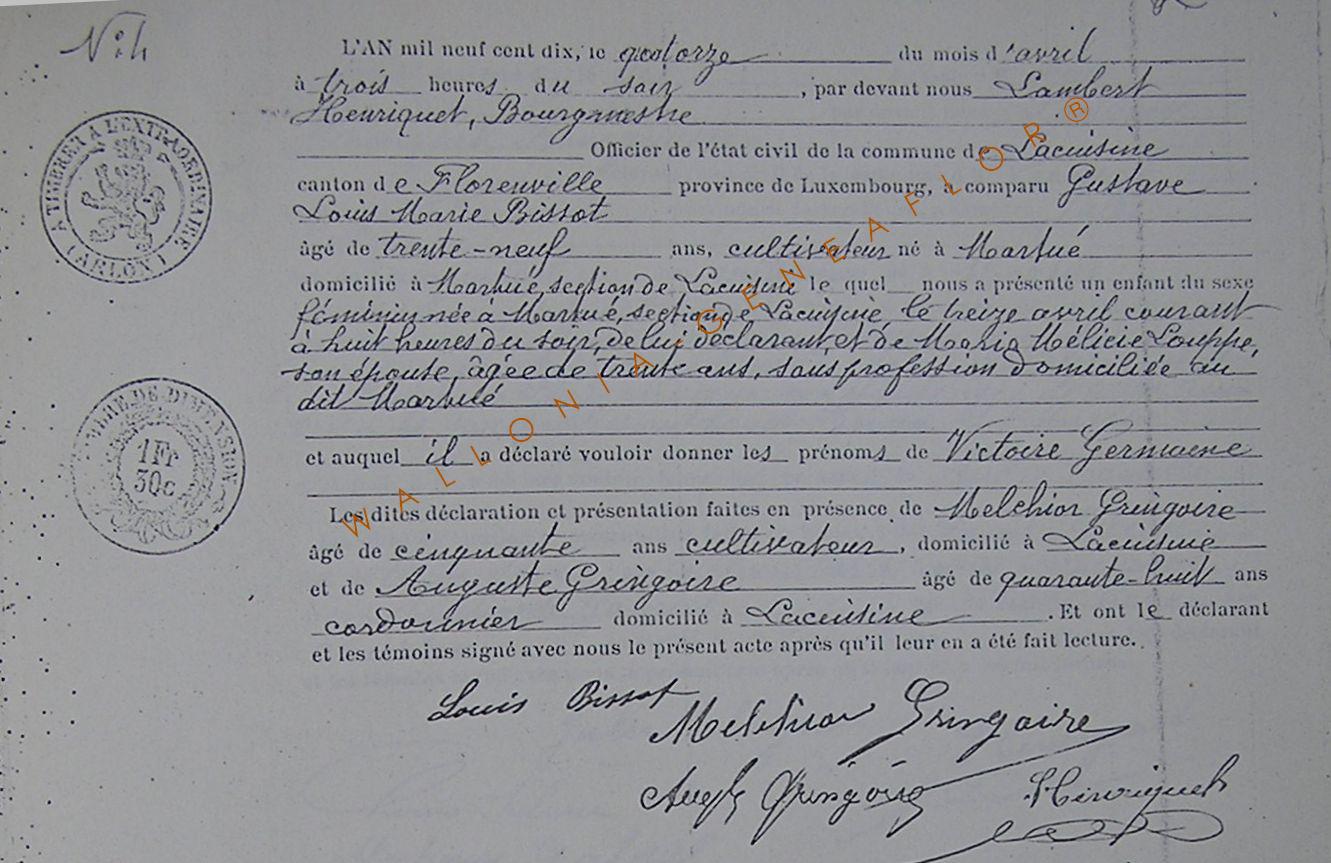 N: 4
L'AN mil neuf cent dix, le quatorze du mois d'avril
à trois heures du soir, par devant nous Lambert
Henriquet, Bourgmestre
Officier de l'état civil de la commune de Lacuisine
canton de Florenville province de Luxembourg, a comparu Gustave
Louis Marie Bissot
âgé de trente-neuf ans, cultivateur né à Martué
domicilié à Martué, section de Lacuisine le quel nous a présenté un enfant du sexe
féminin née à Martué, section de Lacuisine le treize avril courant
à huit heures du soir, de lui déclarant et de Maria Mélicie Louppe,
son épouse, âgée de trente ans, sans profession domiciliée au
dit Martué
et auquel il a déclaré vouloir donner les prénoms de Victoire Germaine
Les dites déclaration et présentation faites en présence de Melchior Gringoire
âgé de cinquante ans cultivateur, domicilié à Lacuisine
et de Auguste Gringoire âgé de quarante-huit ans
cordonnier domicilié à Lacuisine. Et ont le déclarant
et les témoins signé avec nous le présent acte après qu'il leur en a été fait lecture.
Louis Bissot
Melchior Gringoire
Augte Gringoire
Henriquet
A TIMBRER A L'EXTRAORDINAIRE
(ARLON)
TIMBRE DE DIMENSION
1 Fr
30c
WALLONIA-GENEAFLOR®